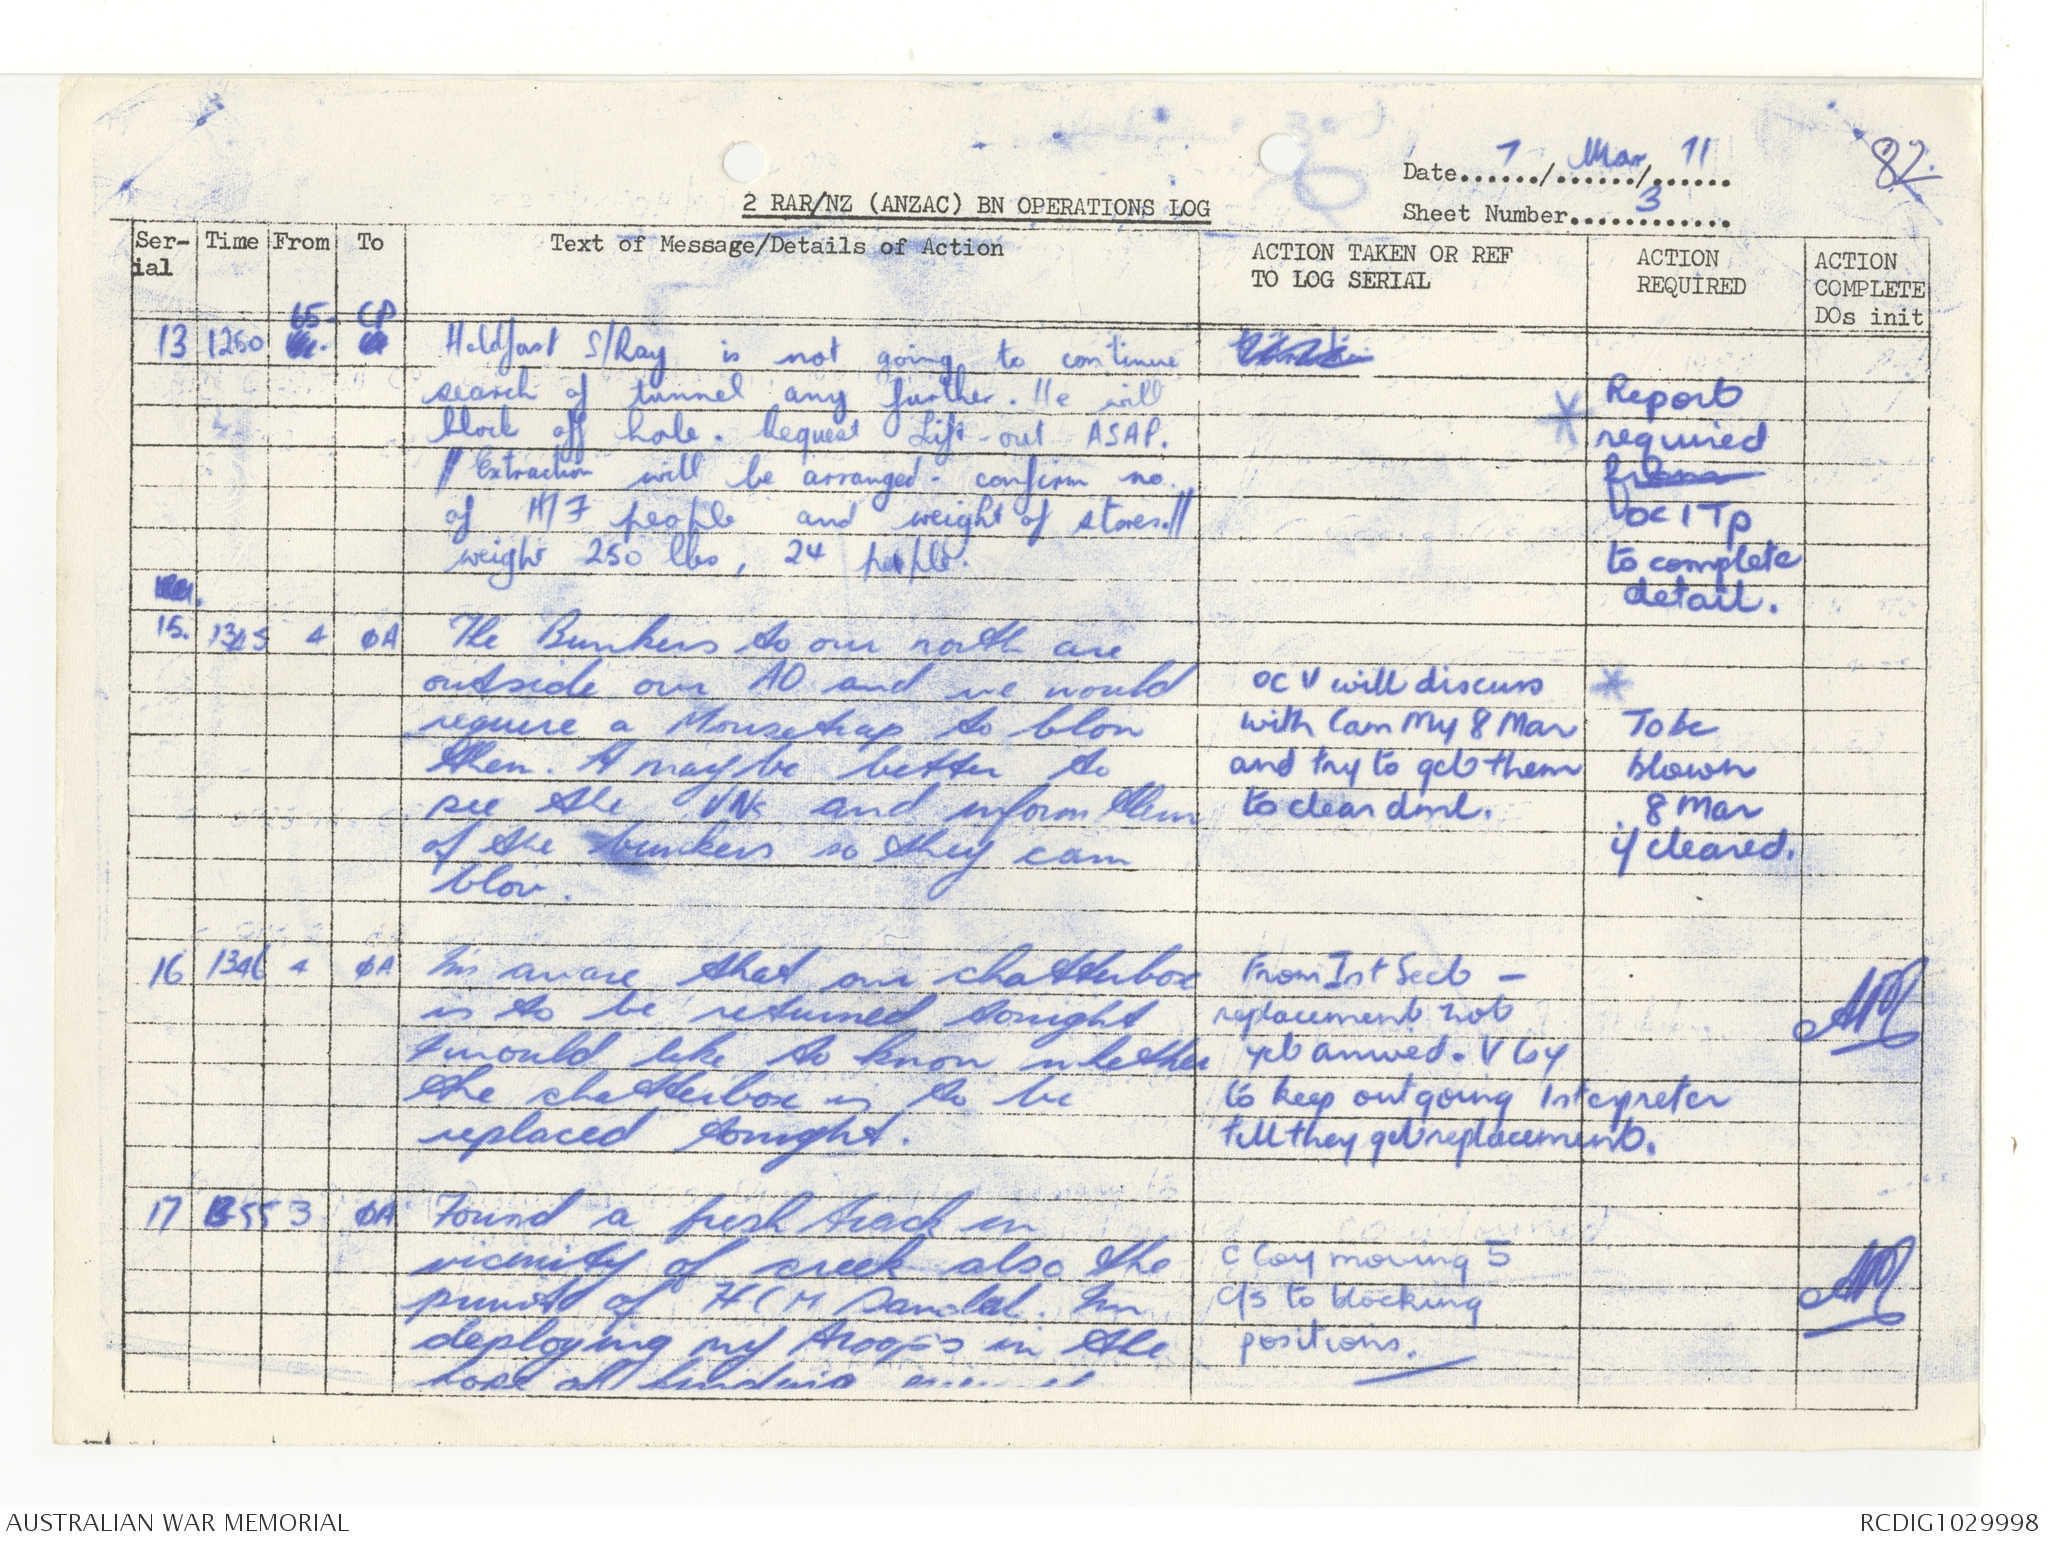 82.
Date 7 / Mar / 71
2 RAR/NZ (ANZAC) BN OPERATIONS LOG
Sheet Number 3
Ser-ial Time From To Text of Message/Details of Action ACTION TAKEN OR REF TO LOG SERIAL ACTION REQUIRED ACTION COMPLETE DOs init
65- CP
13 1250 Holdfast S/Ray is not going to continue
search of tunnel any further. He will
block off hole. Request Lift-out ASAP.
// Extraction will be arranged - confirm no.
of H/F people and weight of stores.//
weight 250 lbs, 24 people.
* Report
required
from
OC 1 Tp
to complete
detail.
15. 1345 4 ØA The Bunkers to our north are
outside our AO and we would
require a Mousetrap to blow
them. It may be better to
see the VNs and inform them
of the bunkers so they can
blow.
OC V will discuss
with Cam My 8 Mar
and try to get them
to clear dml.
*
To be
blown
8 Mar
if cleared.
16 1346 4 ØA I'm aware that our chatterbox
is to be returned tonight
I would like to know whether
the chatterbox is to be
replaced tonight.
From Int Sect -
replacement not
yet arrived. V Coy
to keep outgoing Interpreter
till they get replacement.
17 1355 3 ØA Found a fresh track in
vicinity of creek also the
print of HCM Sandal. I'm
deploying my troops in the
hope of
C Coy moving 5
C/S to blocking
positions.
AUSTRALIAN WAR MEMORIAL
RCDIG1029998